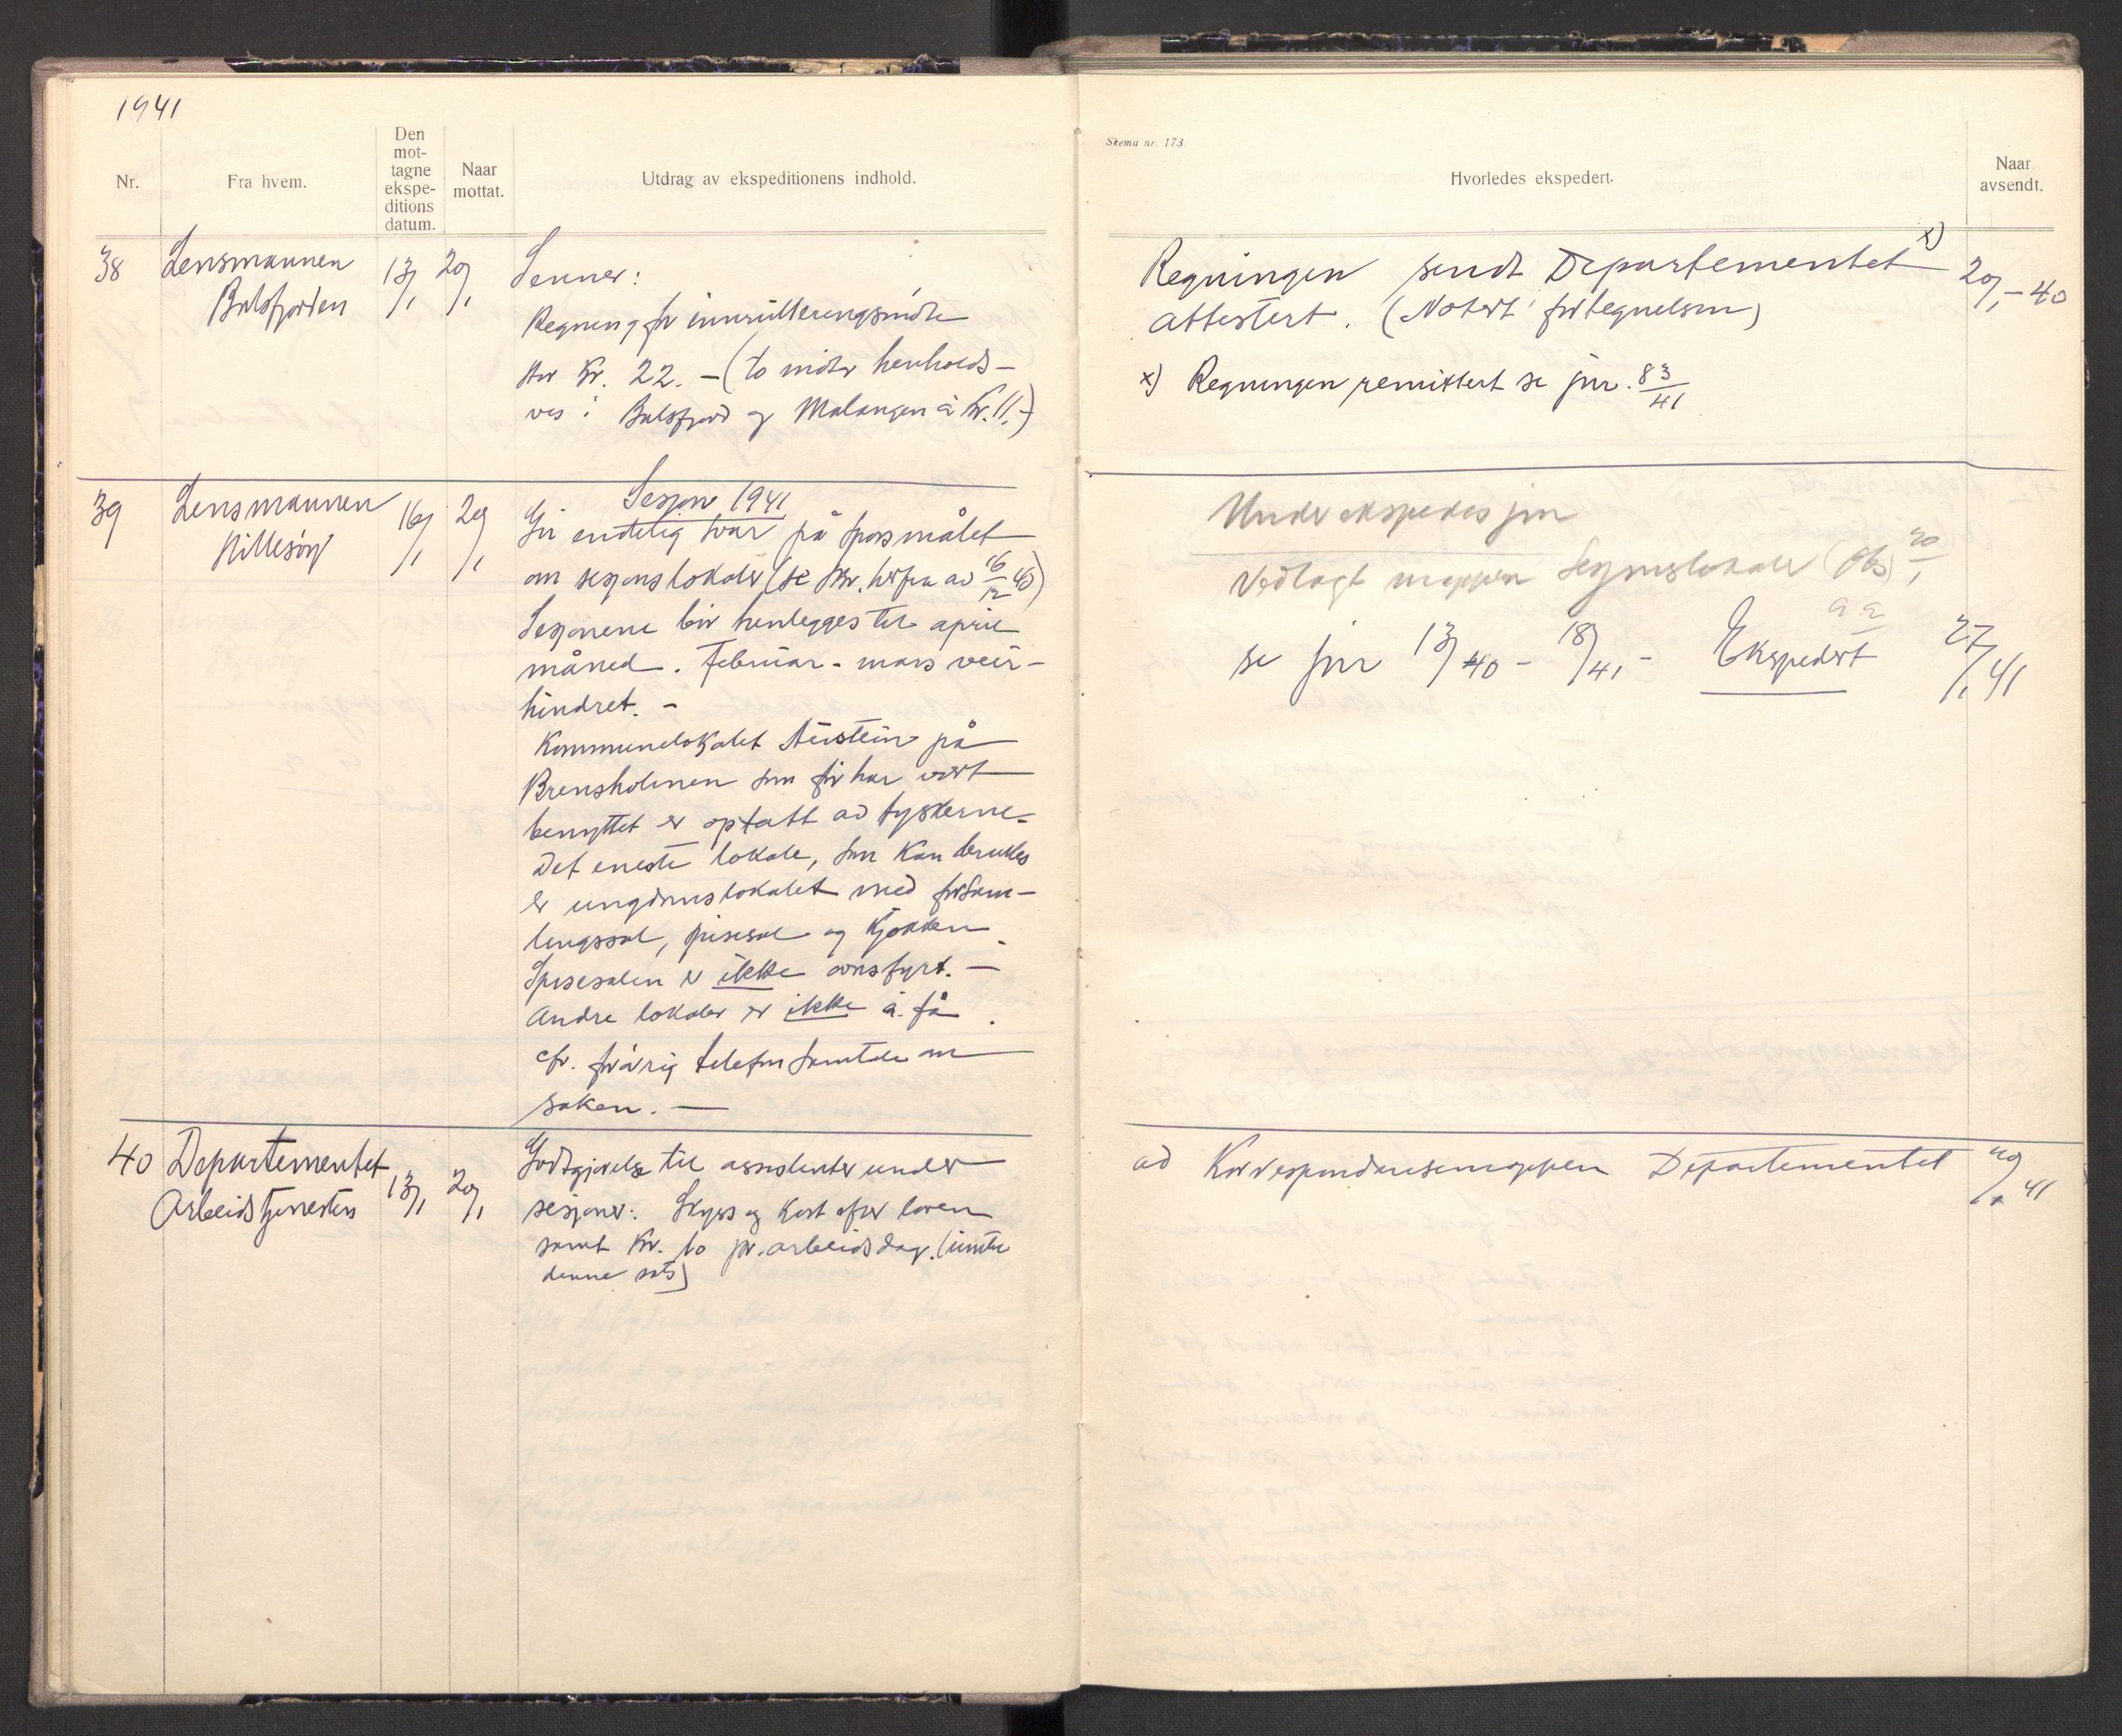 1941
Nr.
Fra hvem.
Den
mot-
tagne
ekspe-
ditions
datum.
Naar
mottat.
Utdrag av ekspeditionens indhold.
38
Lensmannen
Balsfjorden
13/1
20/1
Senner:
Regning for innrulleringsmøte
stor Kr. 22.— (to møter henholds-
vis i Balsfjord og Malangen à kr. 11.-)
39
Lensmannen
Hillesøy
16/1
20/1
Sesjon 1941
Gir endelig svar på spørsmålet
om sesjonslokaler (se skr. herfra av 16/12 40)
Sesjonene bør henlegges til april
måned. Februar - mars veir-
hindret. -
Kommunelokalet på
Brensholmen som før har vært
benyttet er optatt av tyskerne.
Det eneste lokale, som kan brukes
er ungdomslokalet med forsam-
lingssal, spisesal og kjøkken.
Spisesalen er ikke ovnsfyrt. —
Andre lokaler er ikke å få.
cfr. forøvrig telefonsamtale om
saken. —
40
Departementet
Arbeidstjenesten
13/1
20/1
Godtgjørelse til assistenter under
sesjoner: Skyss og kost efter loven
samt kr. 10 pr. arbeidsdag. (inntil
denne sats)
Skema nr. 173.
Hvorledes ekspedert.
Naar
avsendt.
Regningen sendt Departementet x)
20/1-40
attestert. (Notert fortegnelsen)
x) Regningen remittert se jnr. 83/41
Under ekspedisjon
Vedlagt mappen Sesjonslokaler (Obs) 20/1
se jnr 13/40 - 18/41 - Ekspedert
27/1 41
ad Korrespondansemappen Departementet
20/1 41